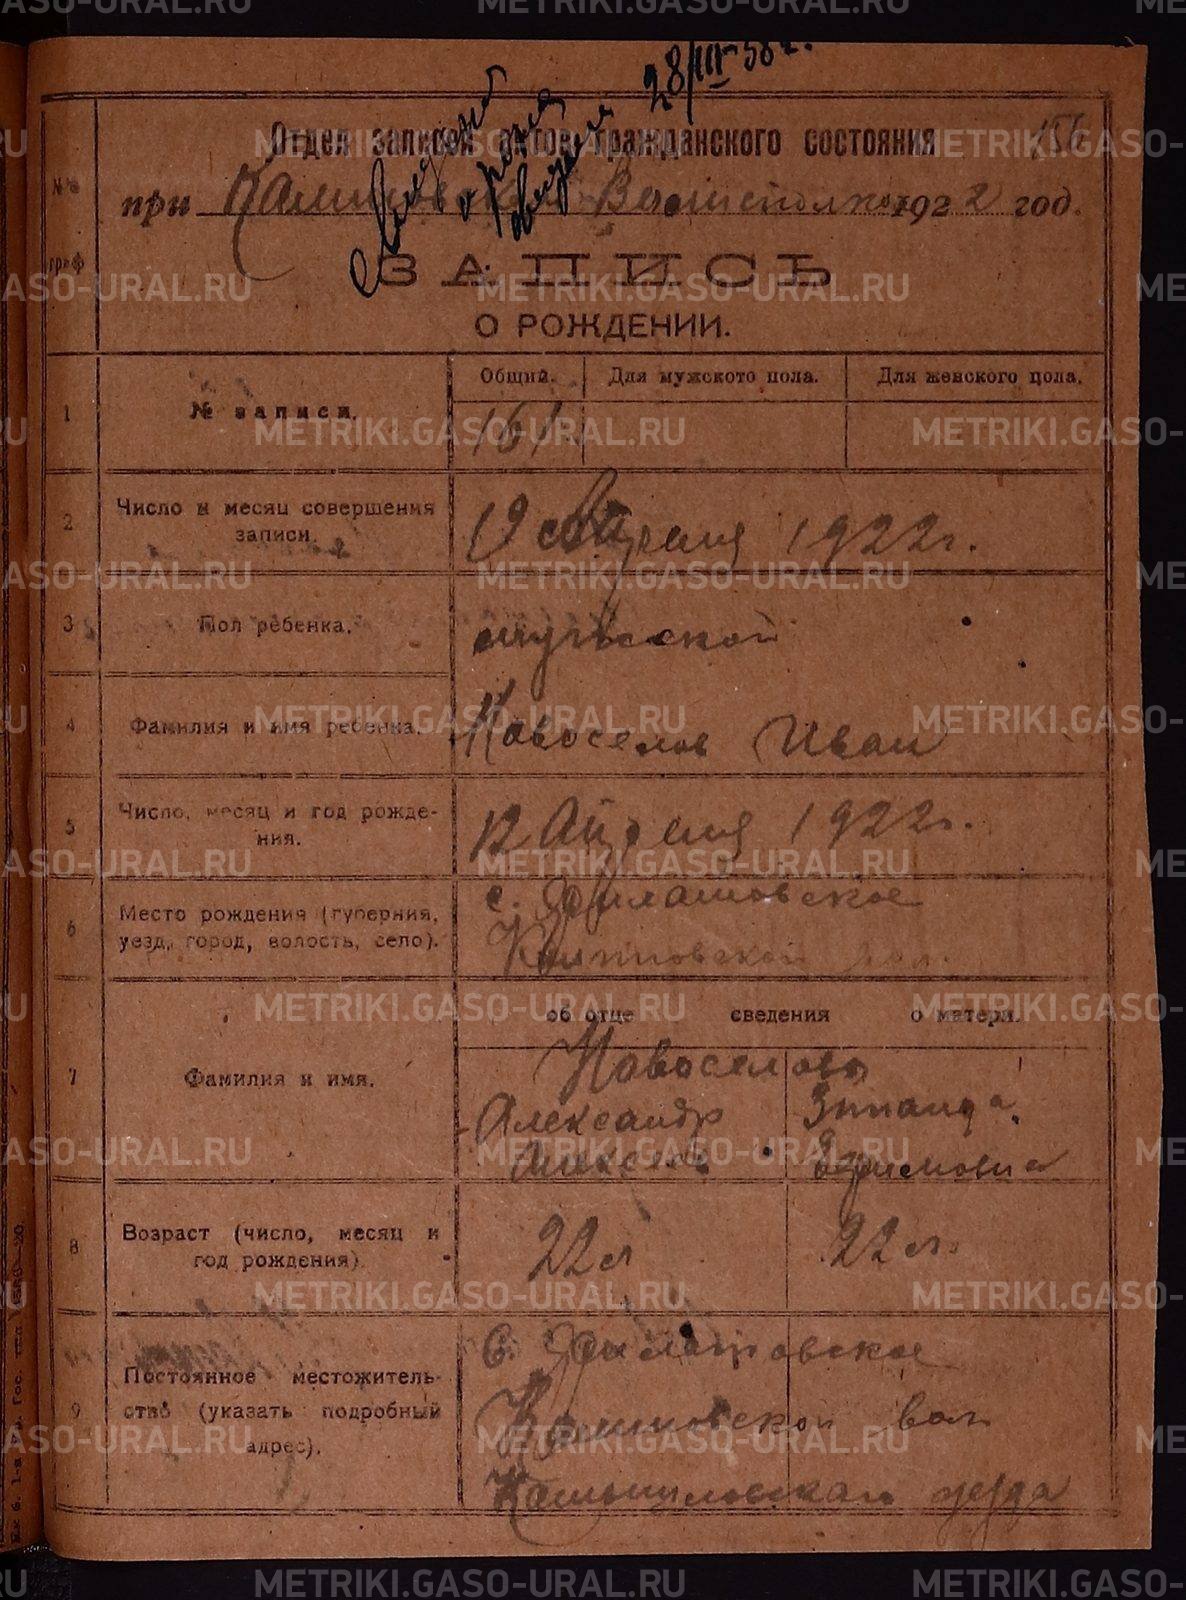 28/III-58 г.
Отдел записей актов гражданского состояния
156
№№
при Волисполкоме 1922 год.
граф
ЗАПИСЬ
О РОЖДЕНИИ.
1
№ записи.
Общий. Для мужского пола. Для женского пола.
161
2
Число и месяц совершения
записи.
19 Апреля 1922 г.
3
Пол ребенка.
мужской
4
Фамилия и имя ребенка.
Новоселов Иван
5
Число, месяц и год рожде-
ния.
12 Апреля 1922 г.
6
Место рождения (губерния,
уезд, город, волость, село).
с.
вол.
об отце сведения о матери.
7
Фамилия и имя.
Новоселовы
Александр Зинаида
Алексеев Ефимовна
8
Возраст (число, месяц и
год рождения)
22 л 22 л.
9
Постоянное местожитель-
ство (указать подробный
адрес).
С. Филатовское
вол
Камышловского уезда
METRIKI.GASO-URAL.RU